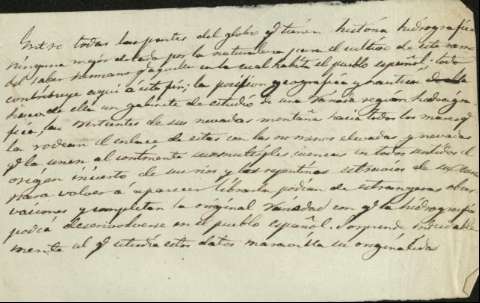 Entre todas las partes del globo q tienen história hidrografica
ninguna mejor dotada por la naturaleza para el cultivo de este ramo
del saber humano q aquella en la cual habita el pueblo español; todo
contribuye aqui á este fin; la posicion geografia y nautica
hace de ella un gabinete de estudio de una variada región hidrográ
fica, las vertientes de sus nevadas montañas hacia todos los mares q
la rodean el enlace de estas con las no menos elevadas y nevadas
q la unen al continente sus multiples cuencas en todos sentidos el
origen incierto de sus rios y las repentinas de su curso
para volver á aparecer podian de estrangeras obser
vaciones y completan la original variedad con q la hidrografia
podia desenvolverse en el pueblo español. Sorprende indudable
mente al q estudia estos datos maravilla su originalidad